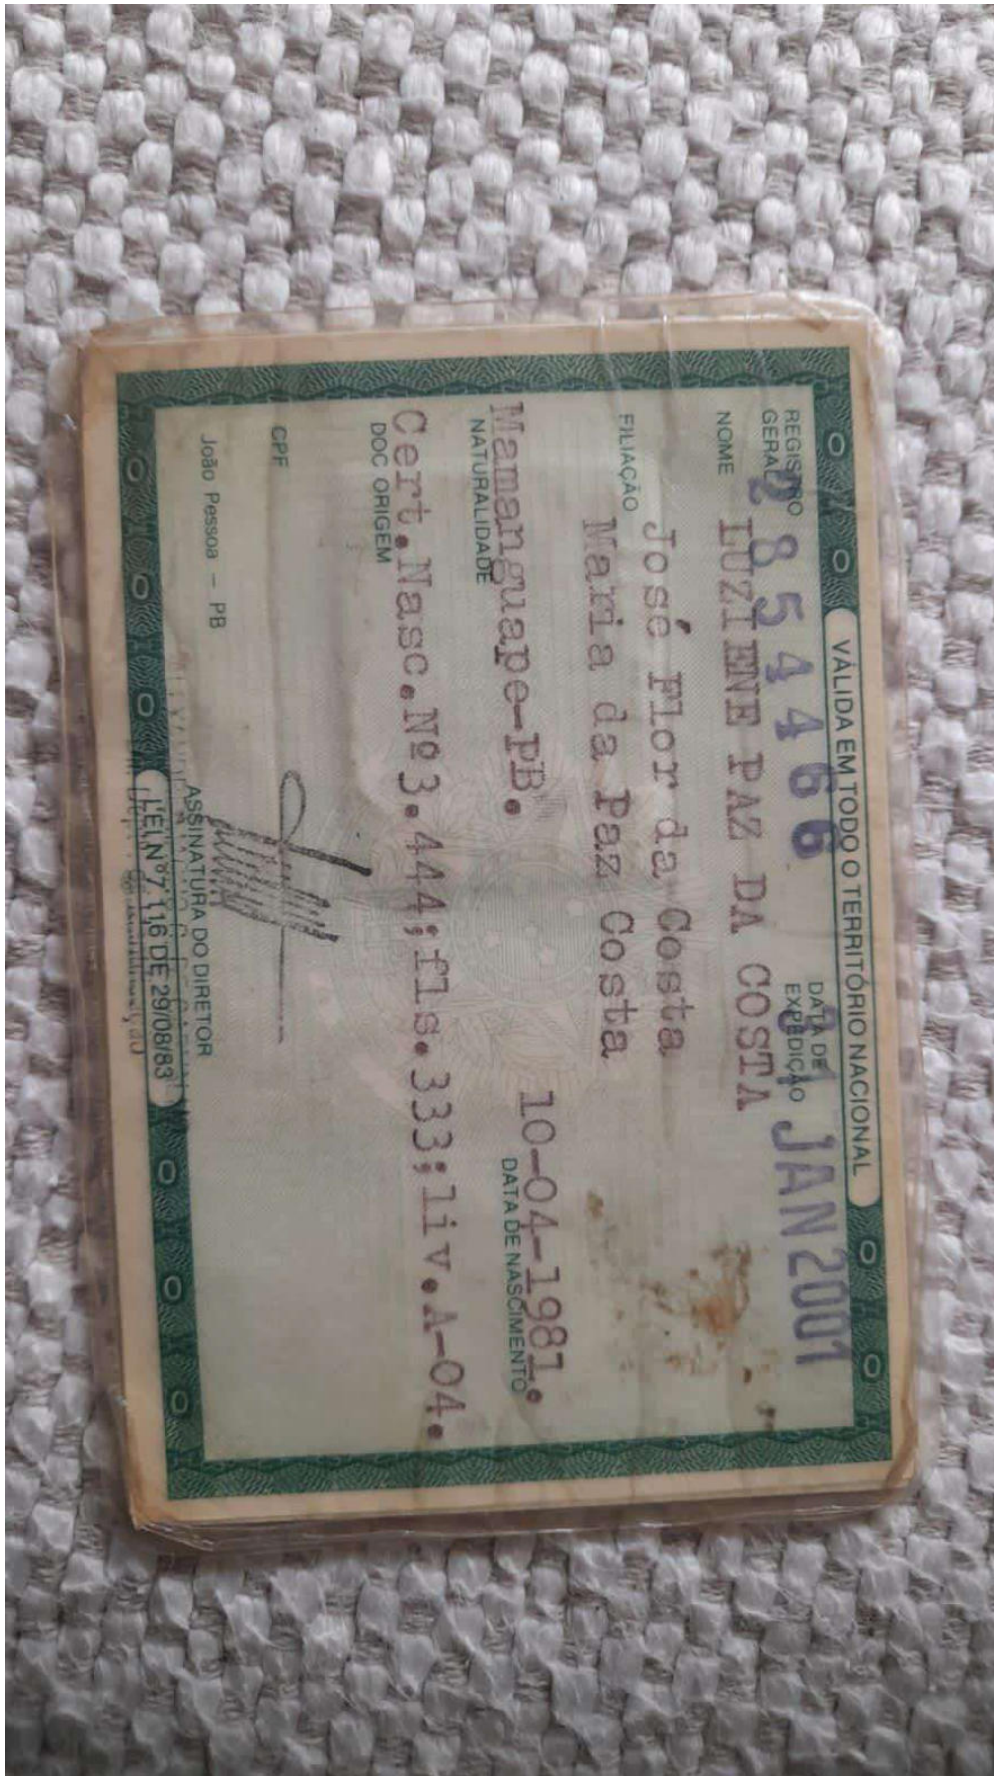 VÁLIDA EM TODO O TERRITÓRIO NACIONAL
REGISTRO GERAL 2854466 DATA DE EXPEDIÇÃO 31 JAN 2001
NOME LUZIENE PAZ DA COSTA
FILIAÇÃO José Flor da Costa
Maria da Paz Costa
Mamanguape-PB. 10-04-1981.
NATURALIDADE DATA DE NASCIMENTO
Cert.Nasc.Nº3.444;fls.333;liv.A-04.
DOC ORIGEM
CPF
João Pessoa - PB
ASSINATURA DO DIRETOR
LEI Nº 7.116 DE 29/08/83